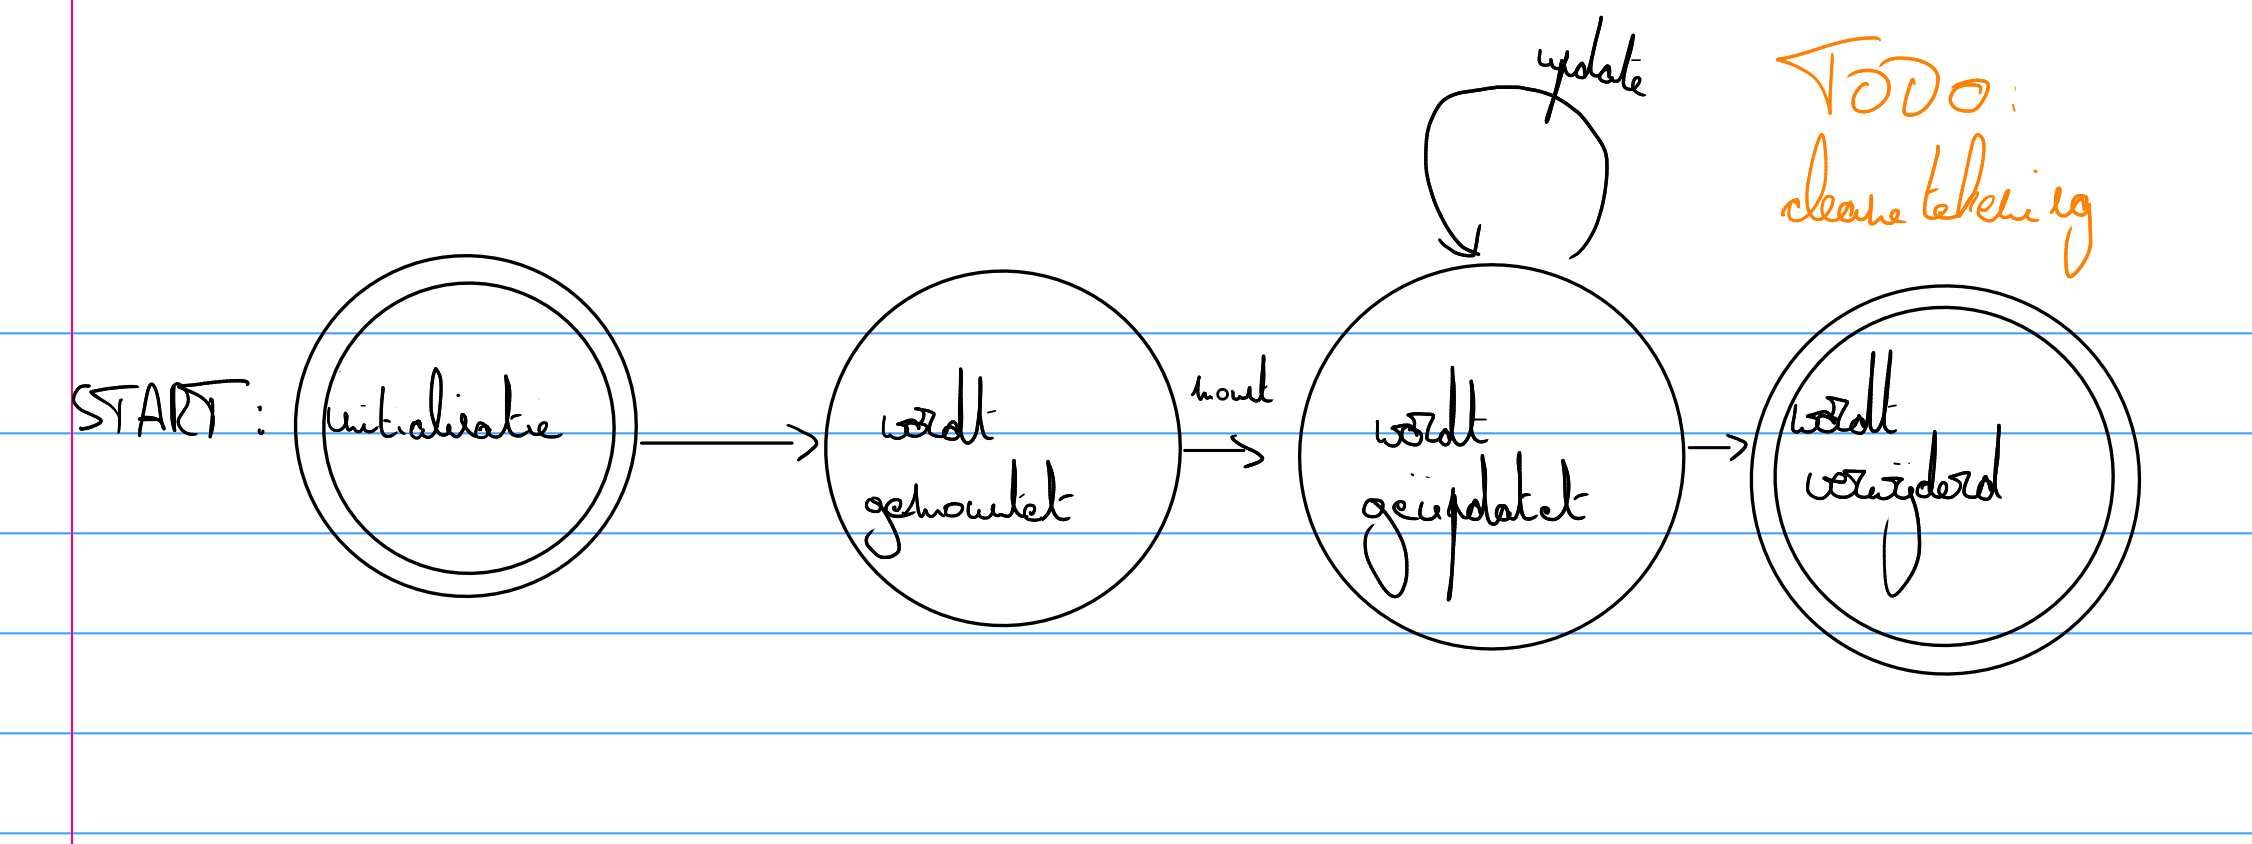 update
TODO:
cleane tekening
START:
initialisatie
wordt
gemountet
mount
wordt
geüpdatet
wordt
verwijderd